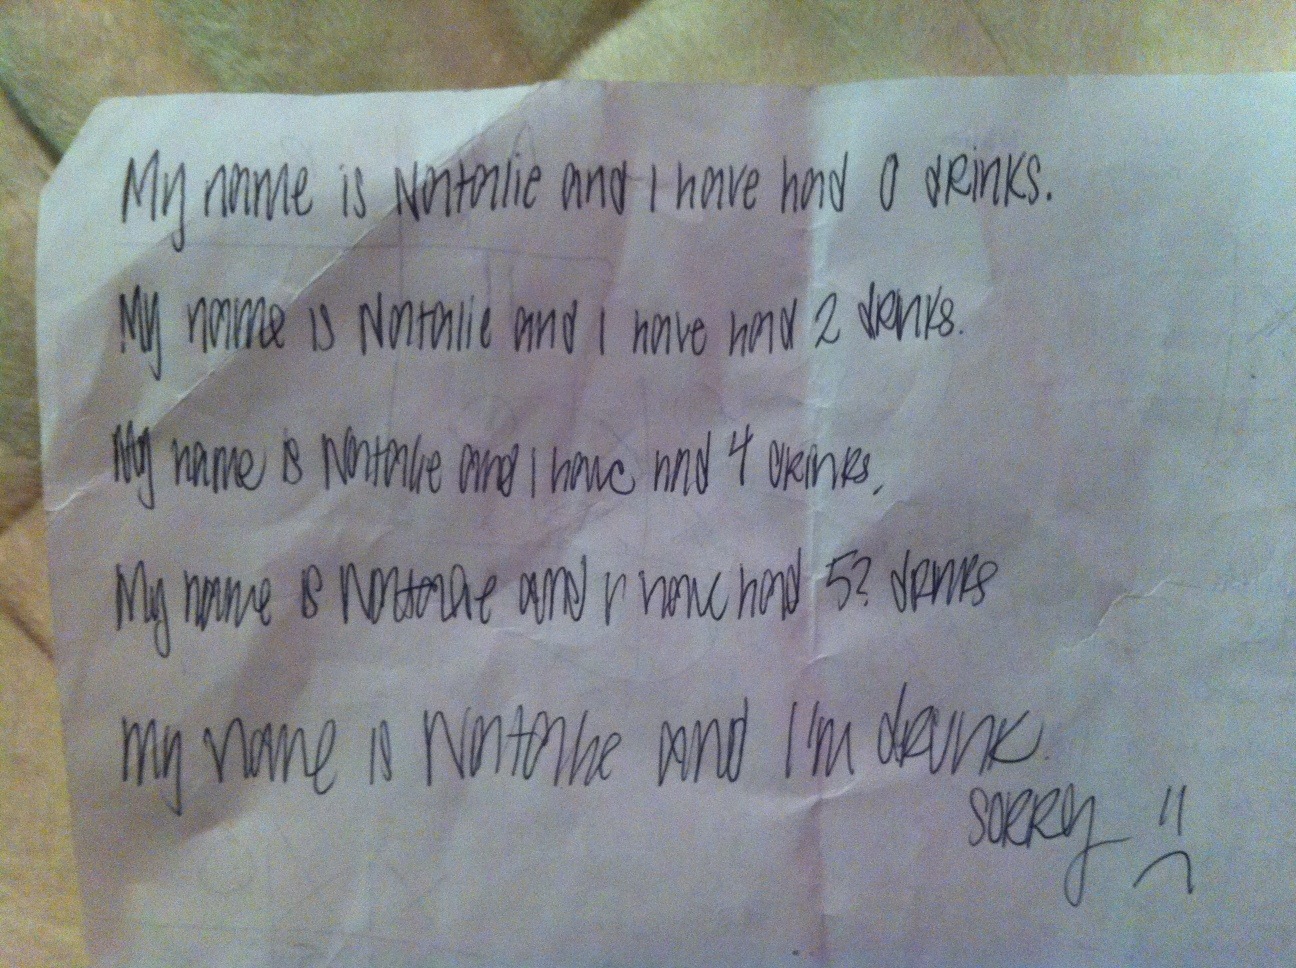 My name is Natalie and I have had 0 drinks.
My name is Natalie and I have had 2 drinks.
My name is Natalie and I have had 4 drinks.
My name is Natalie and I have had 5? drinks
My name is Natalie and I'm drunk.
sorry